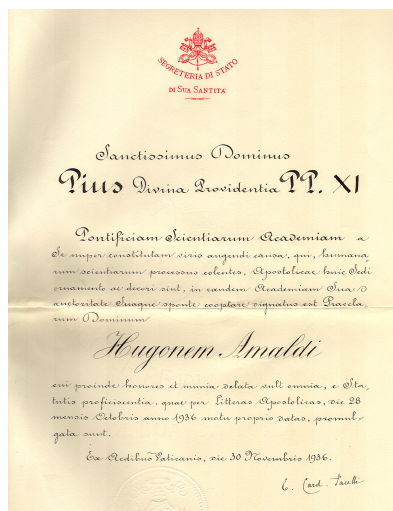 SEGRETERIA DI STATO
DI SUA SANTITÀ
Sanctissimus Dominus
Pius Divina Providentia PP. XI
Pontificiam Scientiarum Academiam a
Se nuper constitutam viris augendi causa, qui, humana
rum scientiarum processus colentes, Apostolicae huic Sedi
ornamento ac decori sint, in eandem Academiam Sua
auctoritate Suaque sponte cooptare dignatus est Praecla,
rum Dominum
Hugonem Amaldi
cui proinde honores et munia delata vult omnia, e Sta,
tutis proficiscentia, quae per Litteras Apostolicas, die 28
mensis Octobris anno 1936 motu proprio datas, promul,
gata sunt.
Ex Aedibus Vaticanis, die 30 Novembris 1936.
E. Card. Pacelli